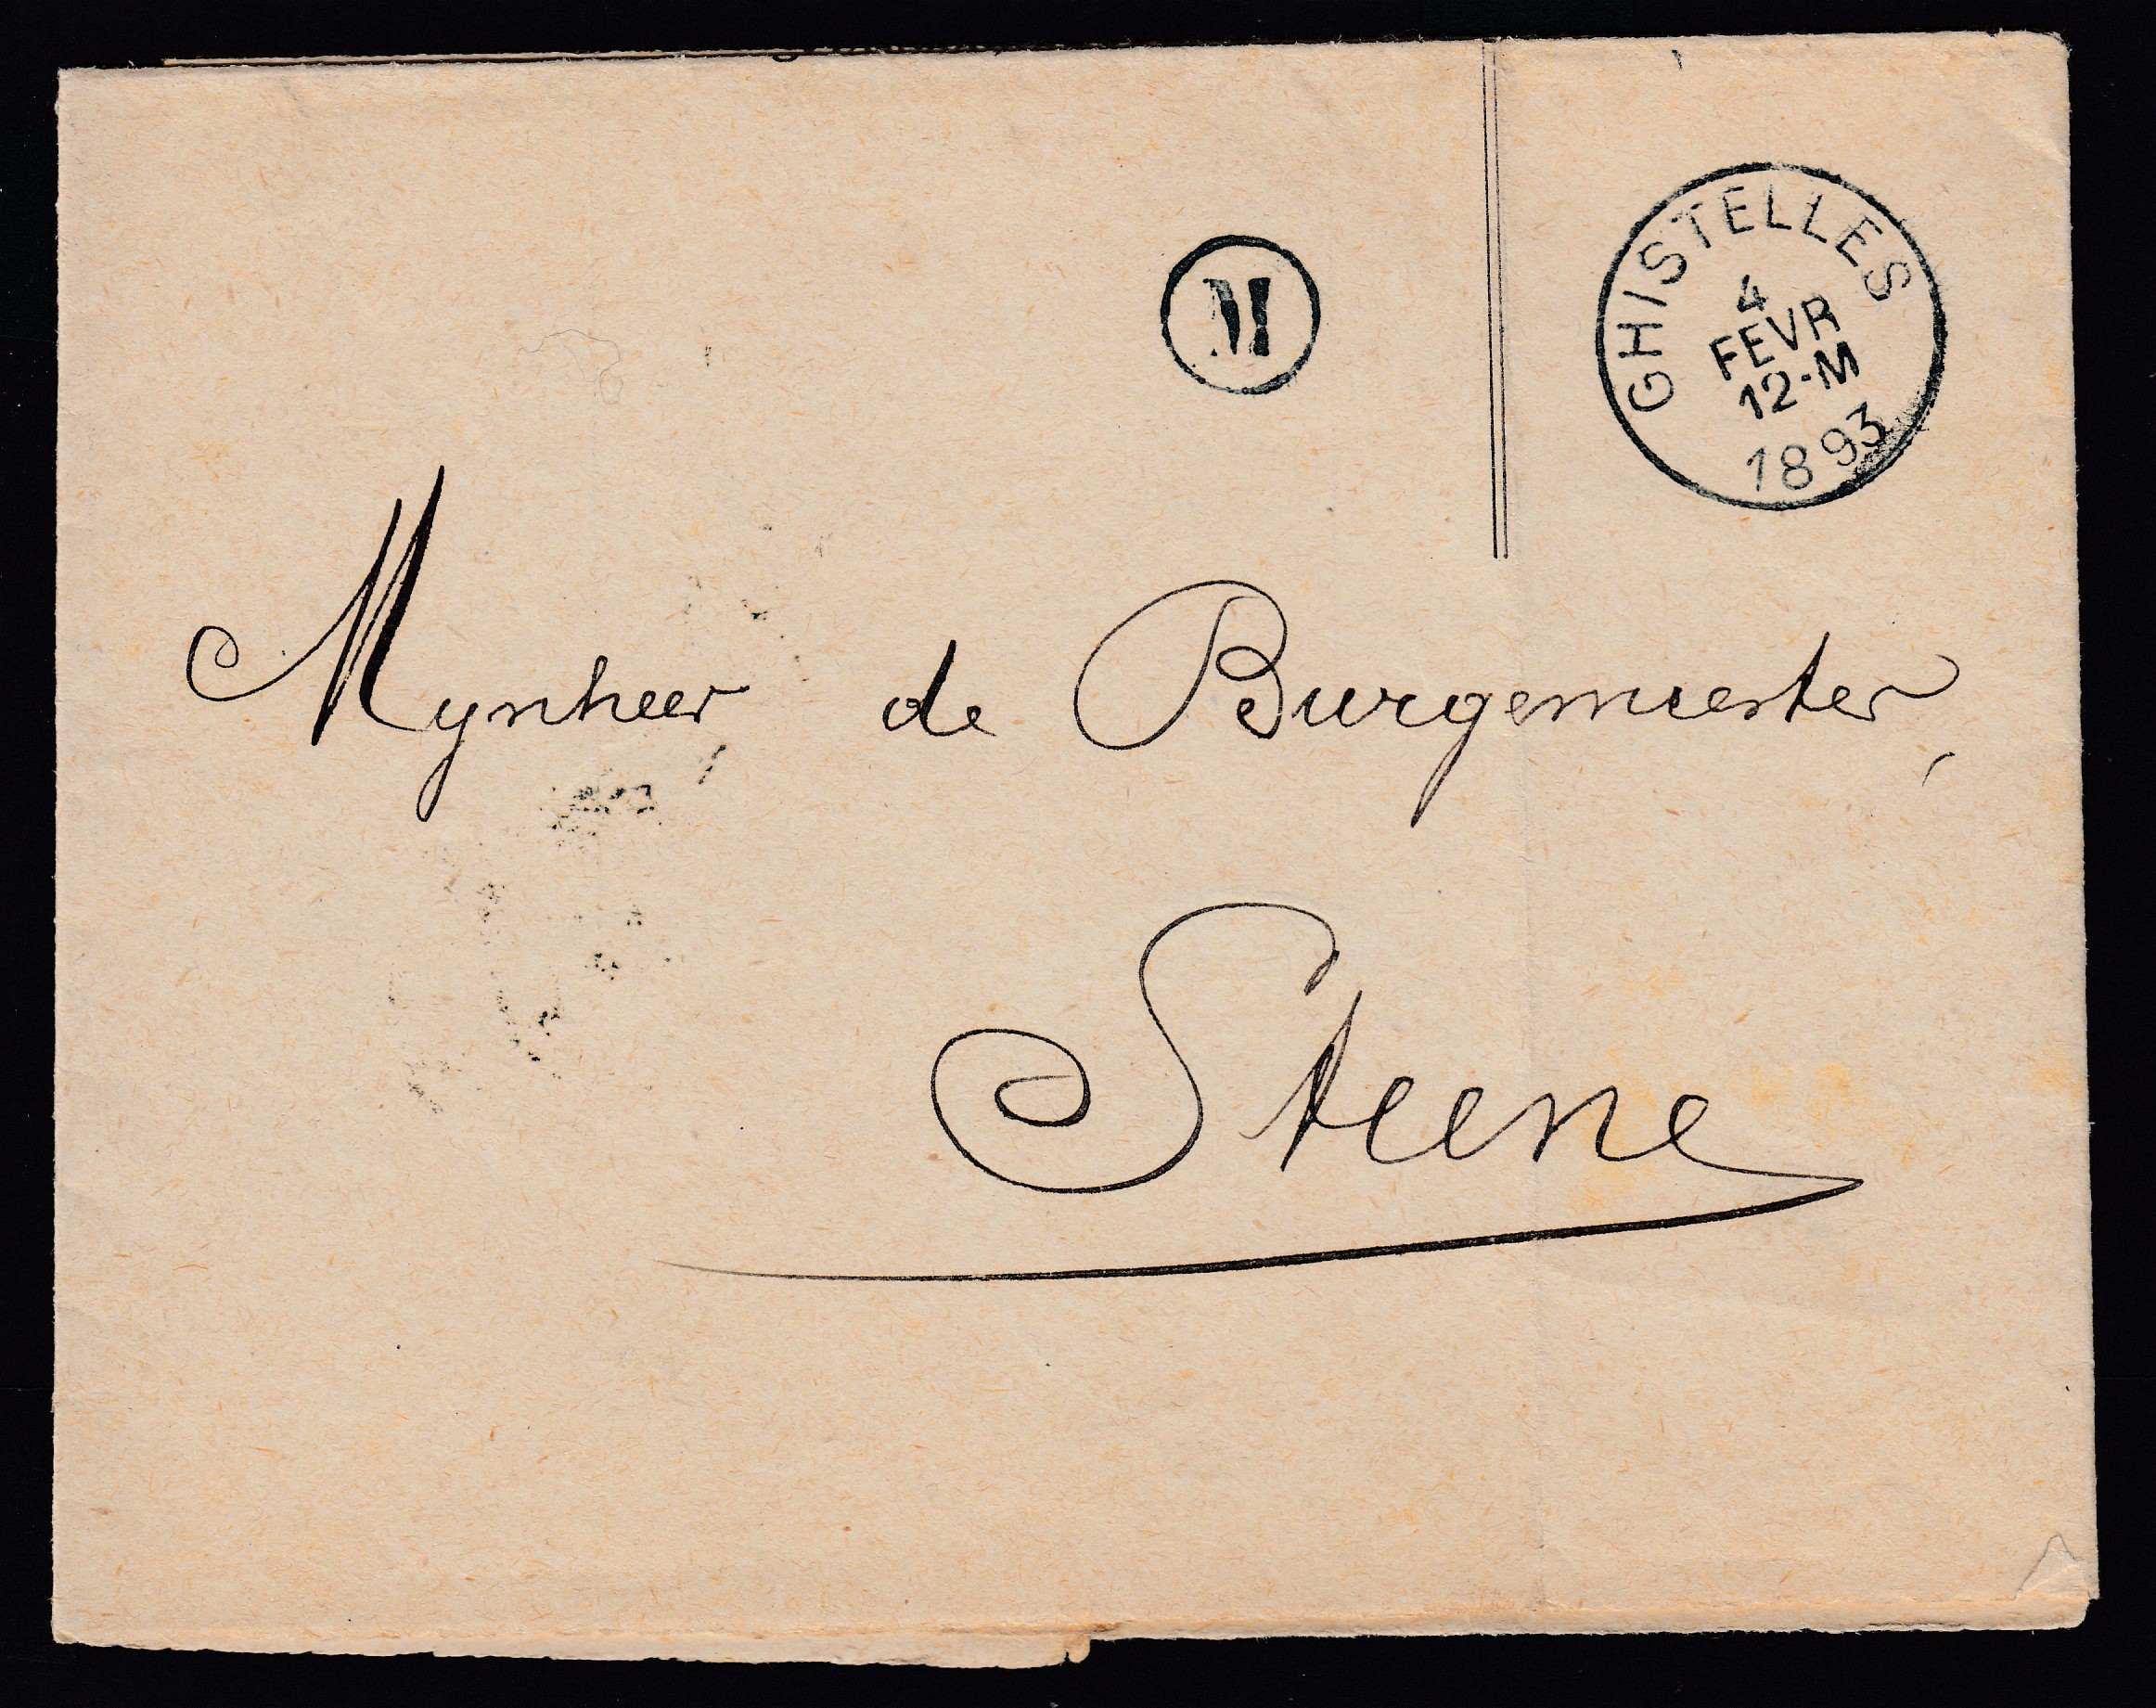 M
GHISTELLES
4
FEVR
12-M
1893
Mynheer de Burgemeester,
Steene